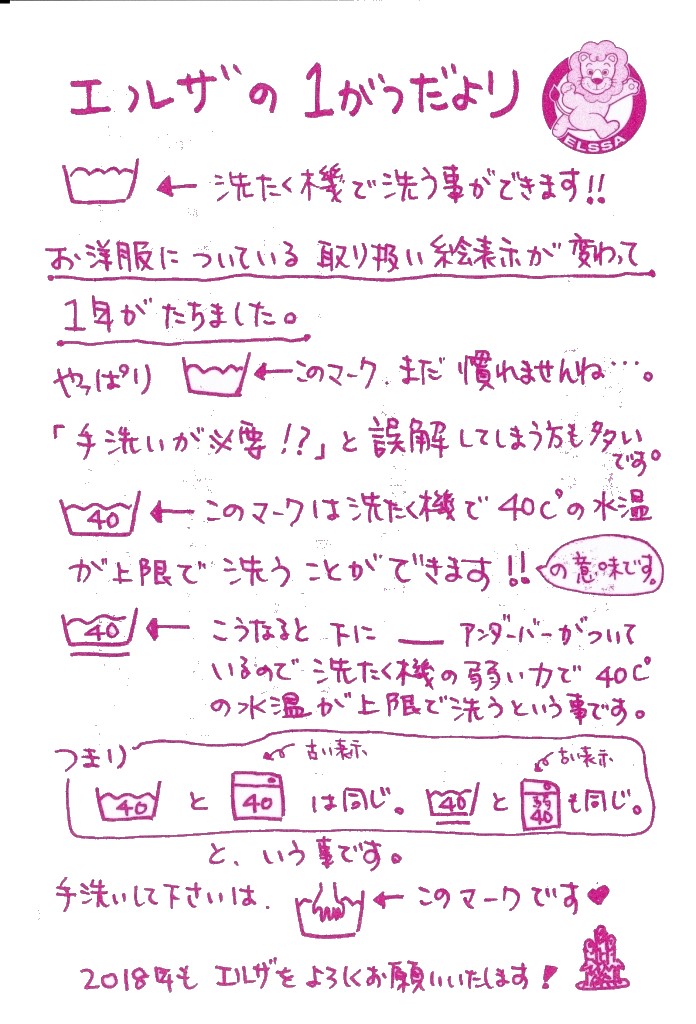 エルザの1がつだより
ELSSA
← 洗たく機で洗う事ができます!!
お洋服についている取り扱い絵表示が変わって
1年がたちました。
やっぱり ←このマーク、まだ慣れませんね…。
「手洗いが必要!?」と誤解してしまう方も多いです。
40 ← このマークは洗たく機で40C°の水温
が上限で洗うことができます!! の意味です。
40 ← こうなると下に __ アンダーバーがついて
いるので洗たく機の弱い力で40C°
の水温が上限で洗うという事です。
つまり 古い表示 古い表示
40 と 40 は同じ。 40 と 弱40 も同じ。
と、いう事です。
手洗いして下さいは、 ← このマークです♥
2018年もエルザをよろしくお願いいたします!